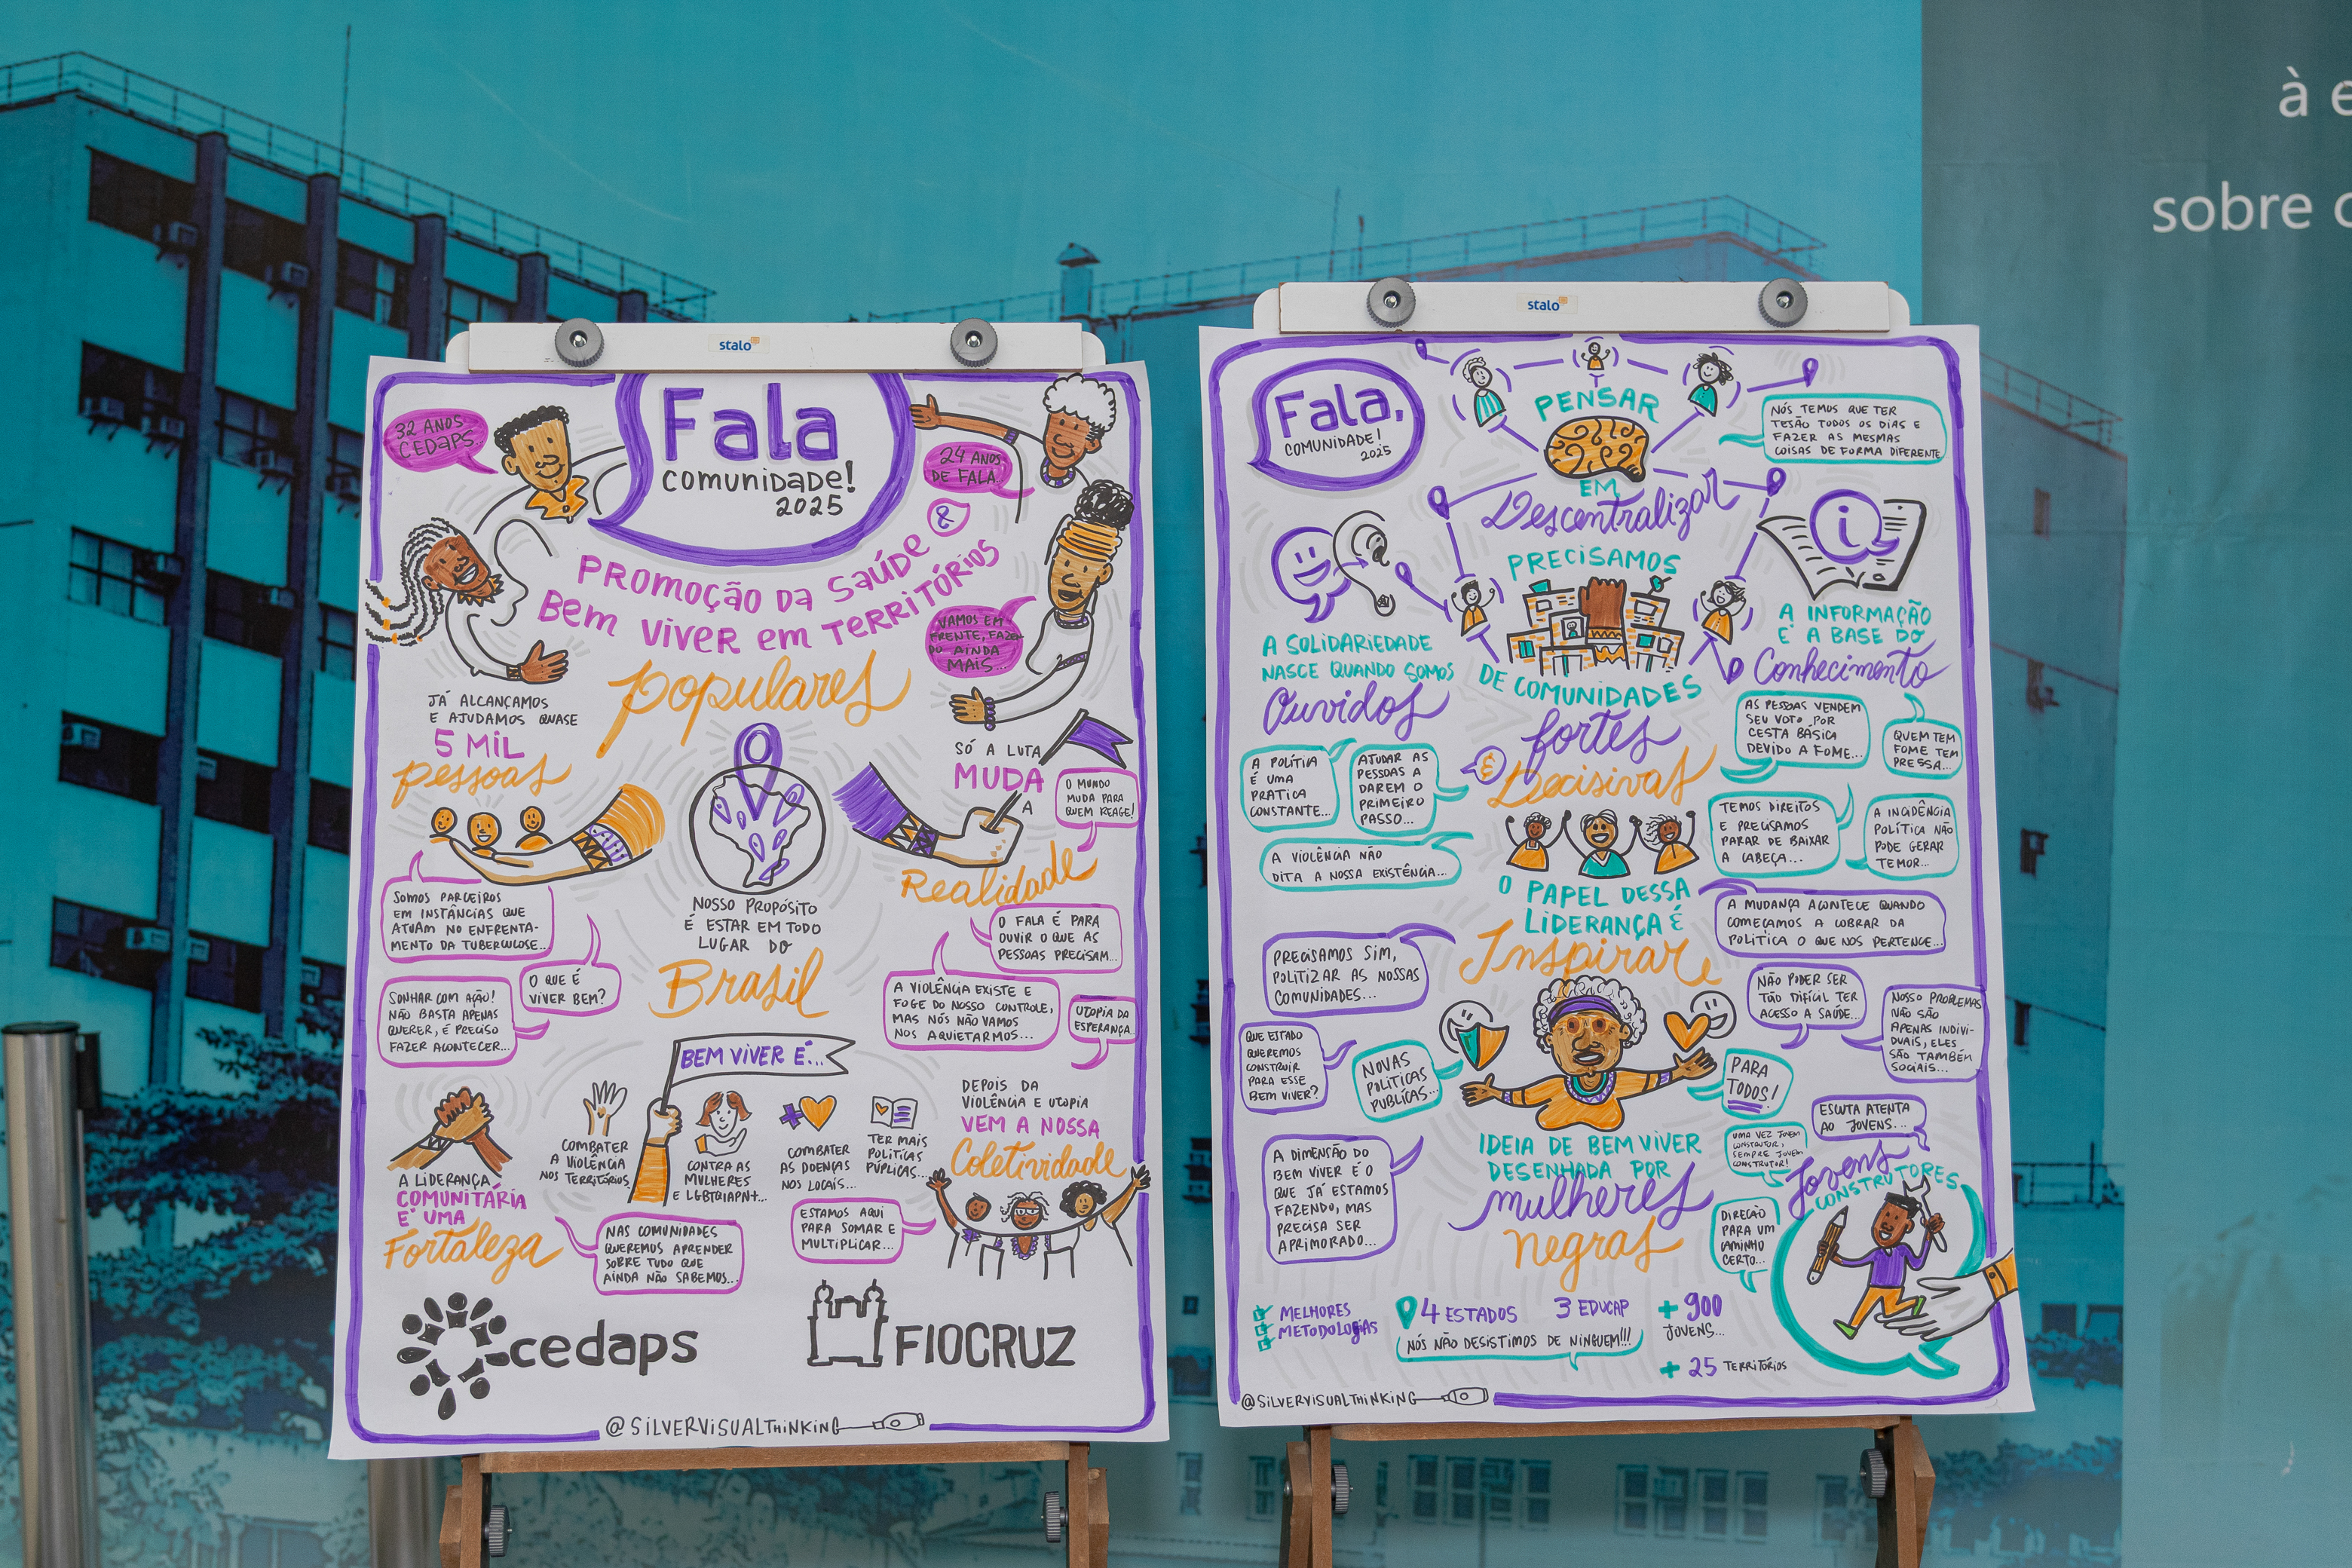 à e
sobre o
stalo
32 ANOS
CEDAPS
Fala
comunidade!
2025
24 ANOS
DE FALA
&
PROMOÇÃO DA SAÚDE
Bem VIVER em TERRITÓRIOS
populares
VAMOS EM
FRENTE, FAZEN
DO AINDA
MAIS...
JÁ ALCANÇAMOS
E AJUDAMOS QUASE
5 MIL
pessoas
SÓ A LUTA
MUDA
A
Realidade
O MUNDO
MUDA PARA
QUEM REAGE!
SOMOS PARCEIROS
EM INSTÂNCIAS QUE
ATUAM NO ENFRENTA-
MENTO DA TUBERCULOSE...
NOSSO PROPÓSITO
É ESTAR EM TODO
LUGAR DO
Brasil
O FALA É PARA
OUVIR O QUE AS
PESSOAS PRECISAM...
O QUE É
VIVER BEM?
SONHAR COM AÇÃO!
NÃO BASTA APENAS
QUERER, É PRECISO
FAZER ACONTECER...
A VIOLÊNCIA EXISTE E
FOGE DO NOSSO CONTROLE,
MAS NÓS NÃO VAMOS
NOS AQUIETARMOS...
UTOPIA DA
ESPERANÇA
BEM VIVER É...
COMBATER
A VIOLÊNCIA
NOS TERRITÓRIOS
CONTRA AS
MULHERES
E LGBTQIAPN+...
COMBATER
AS DOENÇAS
NOS LOCAIS...
TER MAIS
POLÍTICAS
PÚPLICAS...
DEPOIS DA
VIOLÊNCIA E UTOPIA
VEM A NOSSA
Coletividade
A LIDERANÇA
COMUNITÁRIA
E' UMA
Fortaleza
NAS COMUNIDADES
QUEREMOS APRENDER
SOBRE TUDO QUE
AINDA NÃO SABEMOS...
ESTAMOS AQUI
PARA SOMAR E
MULTIPLICAR...
cedaps
FIOCRUZ
@SILVERVISUALTHINKING
stalo
Fala,
COMUNIDADE!
2025
PENSAR
EM
Descentralizar
NÓS TEMOS QUE TER
TESÃO TODOS OS DIAS E
FAZER AS MESMAS
COISAS DE FORMA DIFERENTE
i
A SOLIDARIEDADE
NASCE QUANDO SOMOS
Ouvidos
PRECISAMOS
DE COMUNIDADES
fortes
&
Decisivas
A INFORMAÇÃO
E' A BASE DO
Conhecimento
A POLÍTICA
É UMA
PRATICA
CONSTANTE...
AJUDAR AS
PESSOAS A
DAREM O
PRIMEIRO
PASSO...
A VIOLÊNCIA NÃO
DITA A NOSSA EXISTÊNCIA...
AS PESSOAS VENDEM
SEU VOTO POR
CESTA BÁSICA
DEVIDO A FOME...
QUEM TEM
FOME TEM
PRESSA...
TEMOS DIREITOS
E PRECISAMOS
PARAR DE BAIXAR
A CABEÇA...
A INCIDÊNCIA
POLÍTICA NÃO
PODE GERAR
TEMOR...
O PAPEL DESSA
LIDERANÇA É
Inspirar
A MUDANÇA ACONTECE QUANDO
COMEÇAMOS A COBRAR DA
POLÍTICA O QUE NOS PERTENCE...
PRECISAMOS SIM,
POLITIZAR AS NOSSAS
COMUNIDADES...
NÃO PODER SER
TÃO DIFÍCIL TER
ACESSO A SAÚDE...
NOSSO PROBLEMAS
NÃO SÃO
APENAS INDIVI-
DUAIS, ELES
SÃO TAMBÉM
SOCIAIS...
QUE ESTADO
QUEREMOS
CONSTRUIR
PARA ESSE
BEM VIVER?
NOVAS
POLÍTICAS
PUBLÍCAS...
PARA
TODOS!
ESCUTA ATENTA
AO JOVENS...
UMA VEZ JOVEM
CONSTRUTOR,
SEMPRE JOVEM
CONSTRUTOR!
Jovens
CONSTRUTORES
A DIMENSÃO DO
BEM VIVER É O
QUE JÁ ESTAMOS
FAZENDO, MAS
PRECISA SER
APRIMORADO...
IDEIA DE BEM VIVER
DESENHADA POR
mulheres
negras
DIREÇÃO
PARA UM
CAMINHO
CERTO...
MELHORES
METODOLOGIAS
4 ESTADOS
3 EDUCAP
+ 900
JOVENS...
NÓS NÃO DESISTIMOS DE NINGUEM!!!
+ 25 TERRITÓRIOS
@SILVERVISUALTHINKING